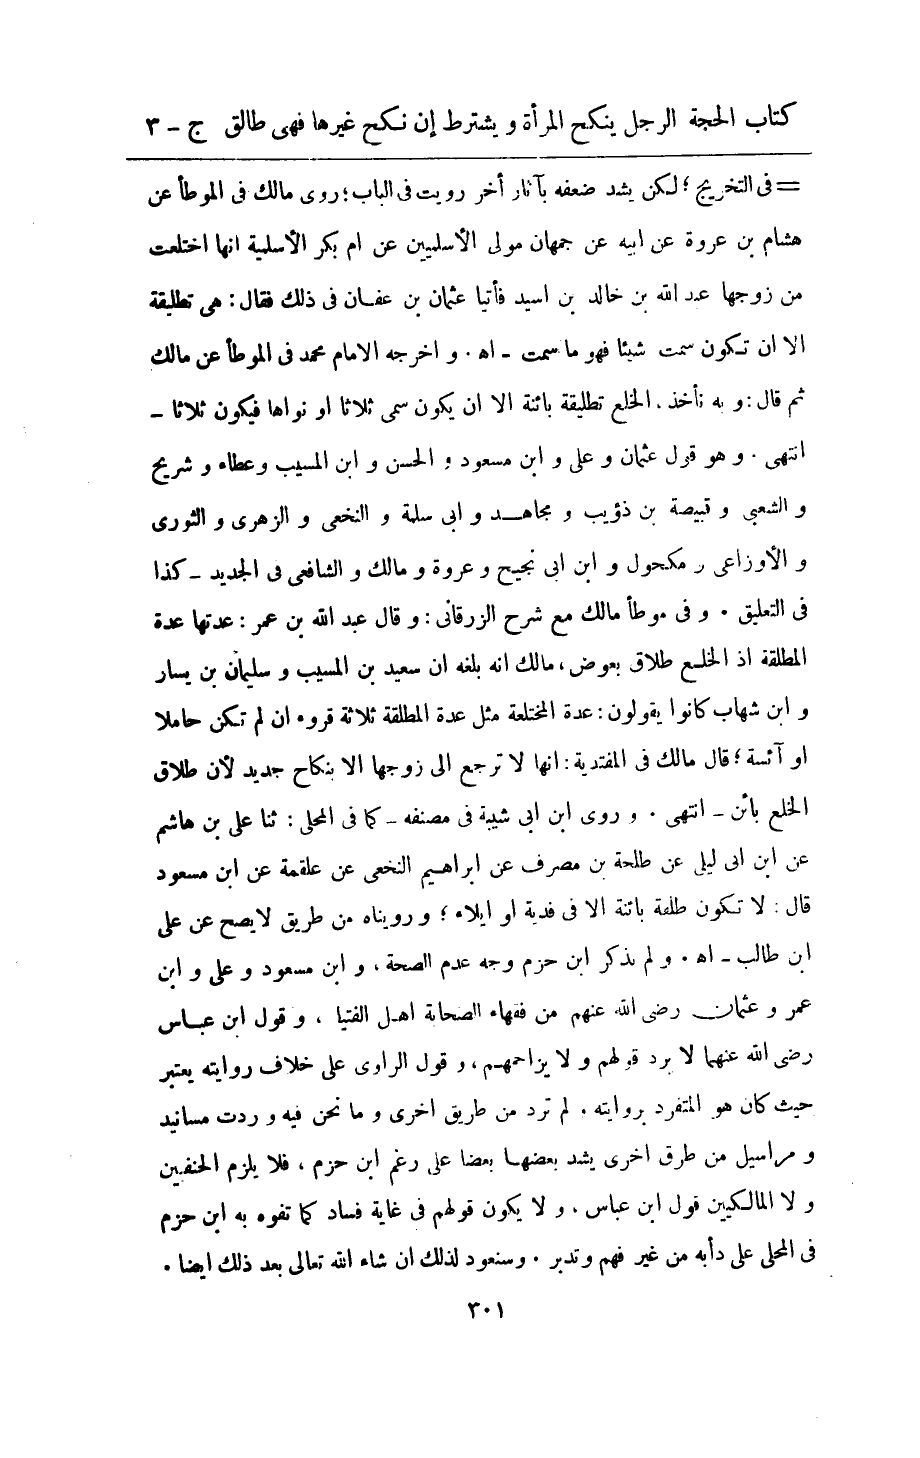 كتاب الحجة الرجل ينكح المرأة و يشترط إن نكح غيرها فهى طالق ج - ٣
= فى التخريج ؛ لكن يشد ضعفه بآثار أخر رويت فى الباب ؛ روى مالك فى الموطأ عن
هشام بن عروة عن ابيه عن جمهان مولى الأسلميين عن ام بكر الأسلمية انها اختلعت
من زوجها عبد الله بن خالد بن اسيد فأتيا عثمان بن عفان فى ذلك فقال : هى تطليقة
الا ان تكون سمت شيئا فهو ما سمت - اه . و اخرجه الامام محمد فى الموطأ عن مالك
ثم قال : و به نأخذ ، الخلع تطليقة بائنة الا ان يكون سمى ثلاثا او نواها فيكون ثلاثا -
انتهى . و هو قول عثمان و على و ابن مسعود و الحسن و ابن المسيب وعطاء و شريح
و الشعبى و قبيصة بن ذؤيب و مجاهد و ابى سلمة و النخعى و الزهرى و الثورى
و الأوزاعى و مكحول و ابن ابى نجيح و عروة و مالك و الشافعى فى الجديد - كذا
فى التعليق . و فى موطأ مالك مع شرح الزرقانى : و قال عبد الله بن عمر : عدتها عدة
المطلقة اذ الخلع طلاق بعوض ، مالك انه بلغه ان سعيد بن المسيب و سليمان بن يسار
و ابن شهاب كانوا يقولون : عدة المختلعة مثل عدة المطلقة ثلاثة قروء ان لم تكن حاملا
او آئسة ؛ قال مالك فى المفتدية : انها لا ترجع الى زوجها الا بنكاح جديد لأن طلاق
الخلع بائن - انتهى . و روى ابن ابى شيبة فى مصنفه - كما فى المحلى : ثنا على بن هاشم
عن ابن ابى ليلى عن طلحة بن مصرف عن ابراهيم النخعى عن علقمة عن ابن مسعود
قال : لا تكون طلقة بائنة الا فى فدية او ايلاء ؛ و رويناه من طريق لا يصح عن على
ابن طالب - اه . و لم يذكر ابن حزم وجه عدم الصحة ، و ابن مسعود و على و ابن
عمر و عثمان رضى الله عنهم من فقهاء الصحابة اهل الفتيا ، و قول ابن عباس
رضى الله عنهما لا يرد قولهم و لا يزاحمهم ، و قول الراوى على خلاف روايته يعتبر
حيث كان هو المتفرد بروايته . لم ترد من طريق اخرى و ما نحن فيه و ردت مسانيد
و مراسيل من طرق اخرى يشد بعضها بعضا على رغم ابن حزم ، فلا يلزم الحنفيين
و لا المالكيين قول ابن عباس ، و لا يكون قولهم فى غاية فساد كما تفوه به ابن حزم
فى المحلى على دأبه من غير فهم و تدبر . و سنعود لذلك ان شاء الله تعالى بعد ذلك ايضا .
٣٠١